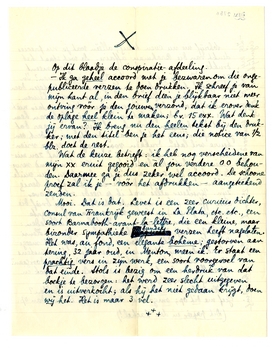 Op dit blaadje de conspiratie-afdeeling.
– Ik ga geheel accoord met je bezwaren om die onge-
publiceerde verzen te doen drukken. Ik schreef je van
mijn kant al, in den brief dien je blijkbaar niet meer
ontving vóór je den jouwen verzond, dat ik erover denk
de oplage heel klein te maken; bv. 15 exx. Wat denk
jij ervan? Ik breng nu den heelen tekst bij den druk-
ker; met den titel ben je het eens; die notice van ½
blz. doet de rest.
Wat de keuze betreft: ik heb nog verscheidene van
mijn xx eruit gegooid en al jou verdere 00 behou-
den. Daarmee ga je dus zeker wel accoord. De schoone
proef zal ik je – voor het afdrukken – aangeteekend
zenden.
Mooi. Dat is dat. Levet is een zeer curieus dichter,
Consul van Frankrijk geweest in La Plata, etc. etc., een
soort Barnabooth avant la lettre, die een kleine, maar
bizonder sympathieke bundel verzen heeft nagelaten.
Het was, au fond, een elegante bohème; gestorven aan
tering, 32 jaar oud, in Menton, maar als er staat een
prachtig vers in zijn werk, een soort voorgevoel van
dat einde. Stols is bezig om een herdruk van dat
boekje te bezorgen: het werd zeer slecht uitgegeven
en is uitverkocht; als hij het niet gedaan krijgt, doen
wij het. Het is maar 3 vel.